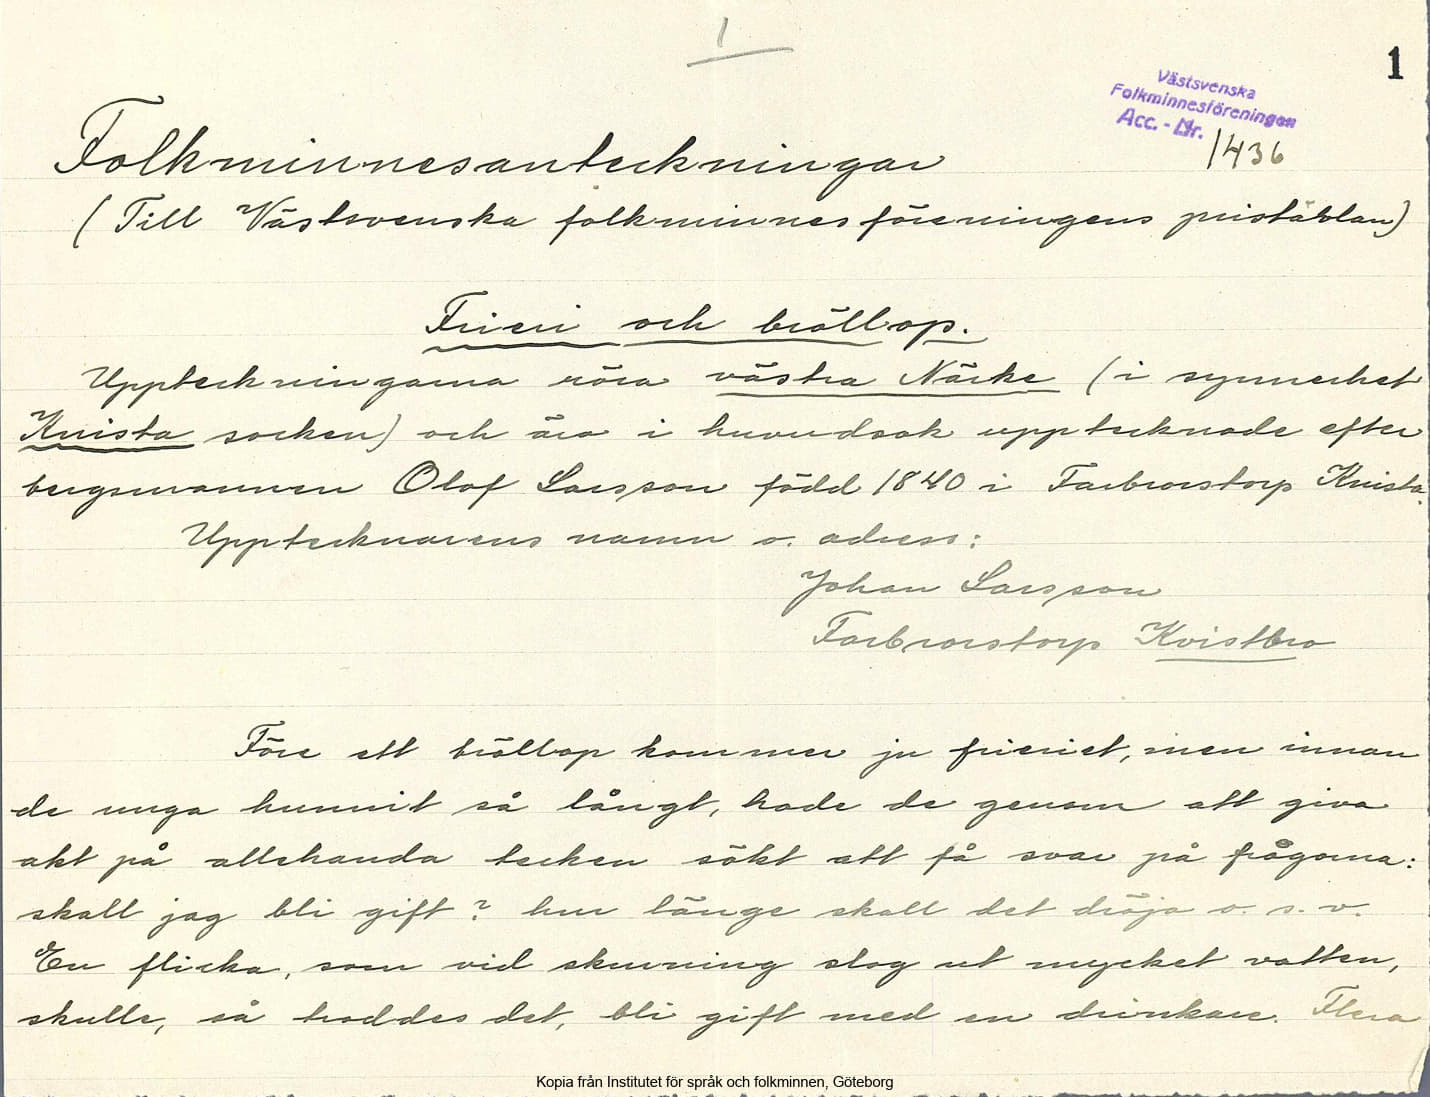 1
1
Västsvenska
Folkminnesföreningen
Acc. - Nr. 1436
Folkminnesanteckningar
(Till Västsvenska folkminnesföreningens pristävlan)
Frieri och bröllop.
Uppteckningarna röra västra Närke (i synnerhet
Knista socken) och äro i huvudsak upptecknade efter
bergsmannen Olof Larsson född 1840 i Farbrorstorp Knista.
Upptecknarens namn o. adress:
Johan Larsson
Farbrorstorp Kvistbro
Före ett bröllop kommer ju frieriet, men innan
de unga hunnit så långt, hade de genom att giva
akt på allehanda tecken sökt att få svar på frågorna:
skall jag bli gift? hur länge skall det dröja o. s. v.
En flicka, som vid skurning slog ut mycket vatten,
skulle, så troddes det, bli gift med en drinkare. Flera
Kopia från Institutet för språk och folkminnen, Göteborg